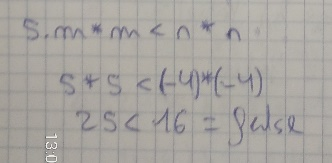 5. m * m < n * n
5 * 5 < (-4) * (-4)
25 < 16 = false
13:0